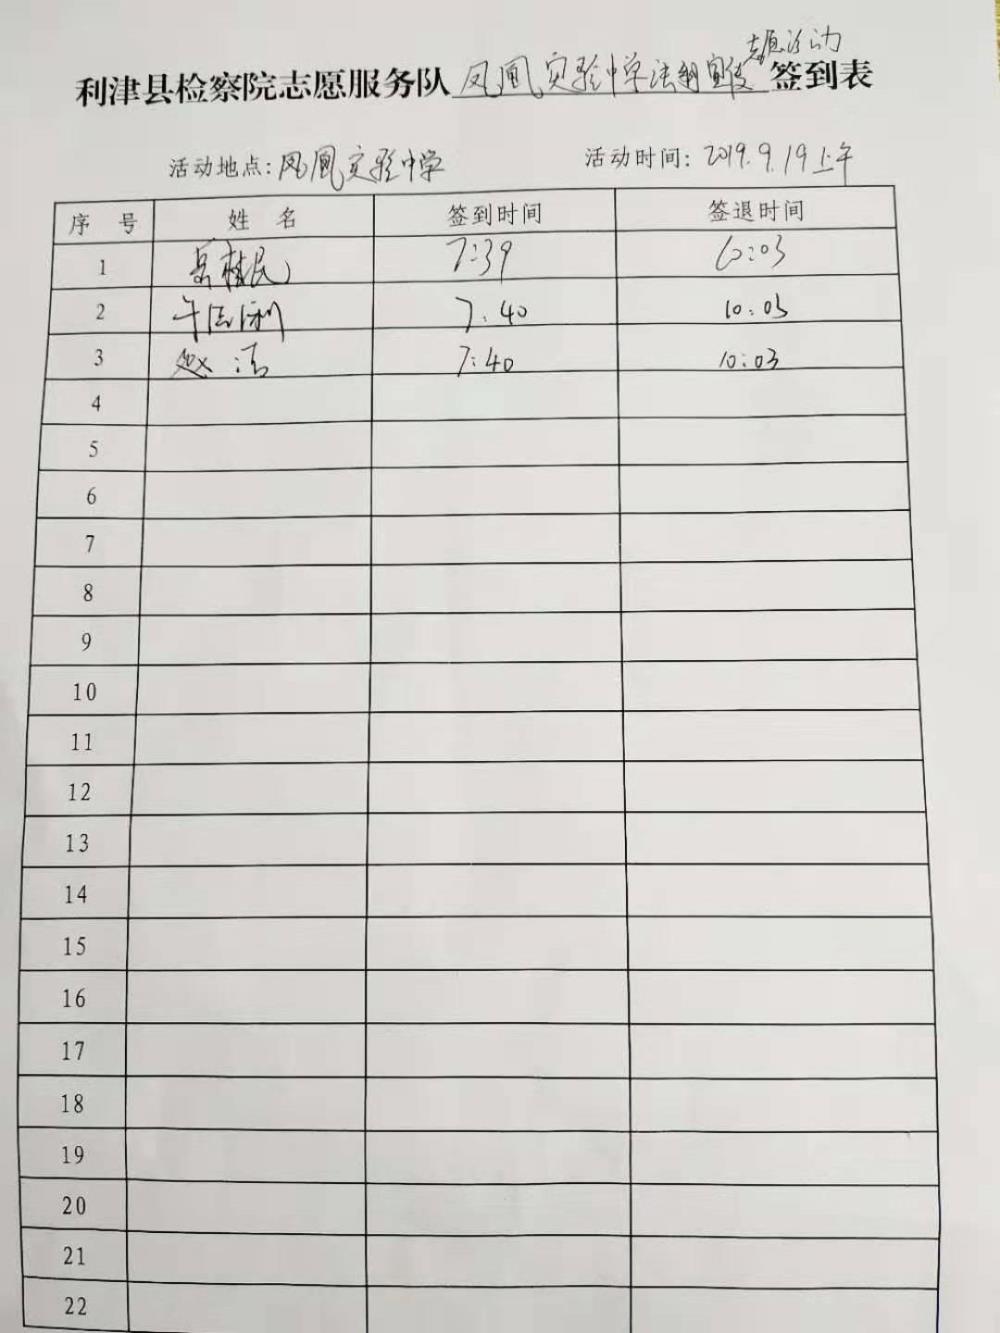 利津县检察院志愿服务队凤凰实验中学法制宣传志愿活动签到表
活动地点:凤凰实验中学 活动时间:2019.9.19上午
序 号 姓 名 签到时间 签退时间
1 7:39 10:03
2 7:40 10:03
3 赵洁 7:40 10:03
4
5
6
7
8
9
10
11
12
13
14
15
16
17
18
19
20
21
22